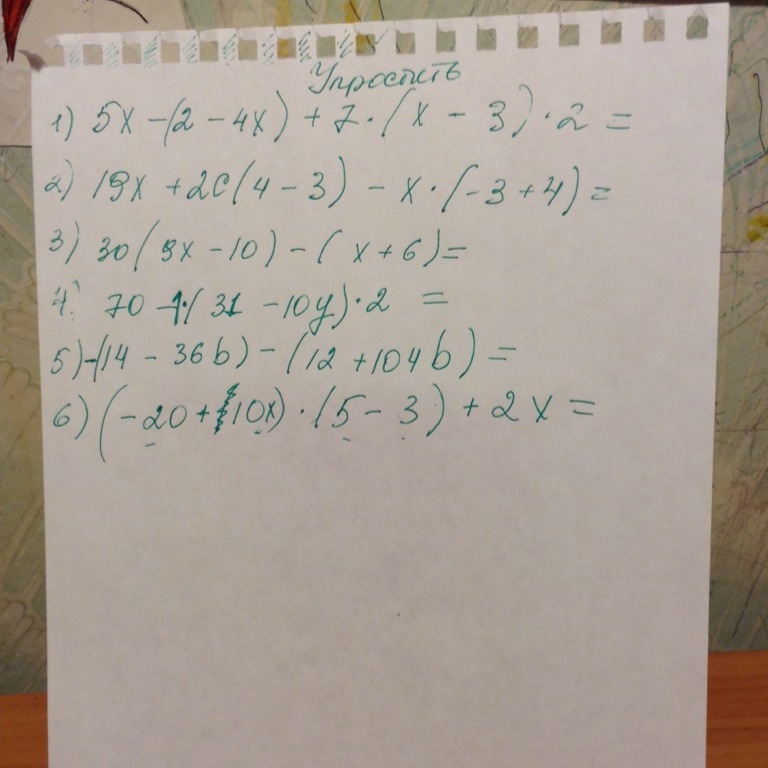 Упростить
1) 5x - (2 - 4x) + 7 · (x - 3) · 2 =
2) 19x + 2c(4 - 3) - x · (-3 + 4) =
3) 30(9x - 10) - (x + 6) =
4. 70 - 1 · (31 - 10y) · 2 =
5) -(14 - 36b) - (12 + 104b) =
6) (-20 + 10x) · (5 - 3) + 2x =